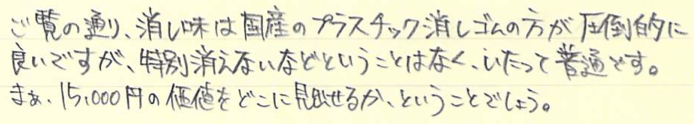 ご覧の通り、消し味は国産のプラスチック消しゴムの方が圧倒的に
良いですが、特別消えないなどということはなく、いたって普通です。
まぁ、15,000円の価値をどこに見出せるか、ということでしょう。